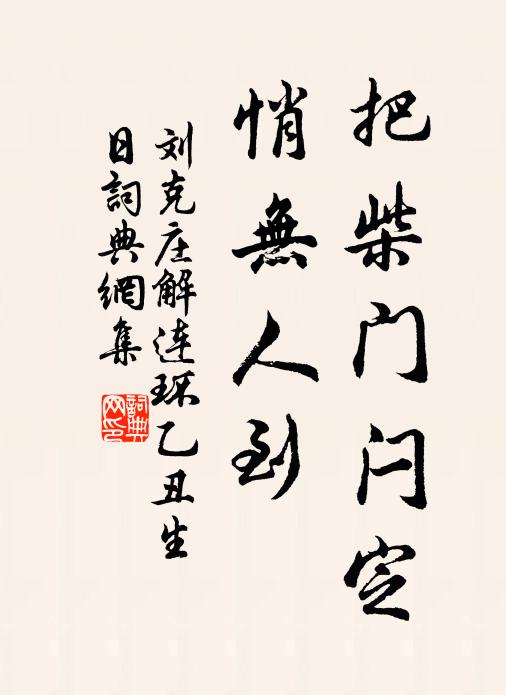 把柴门闩定
悄無人到
刘克庄解连环乙丑生
日詞典網集
詞典
网印